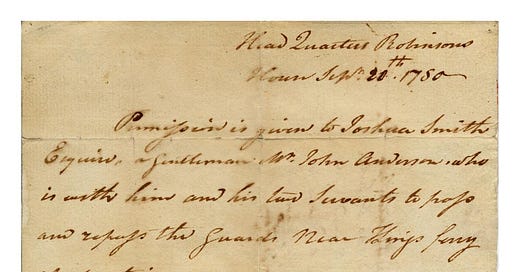 Head Quarters Robinsons
House Sepr. 20th. 1780
Permission is given to Joshua Smith
Esquire, a gentleman Mr. John Anderson who
is with him and his two Servants to pass
and repass the Guards Near Kings ferry